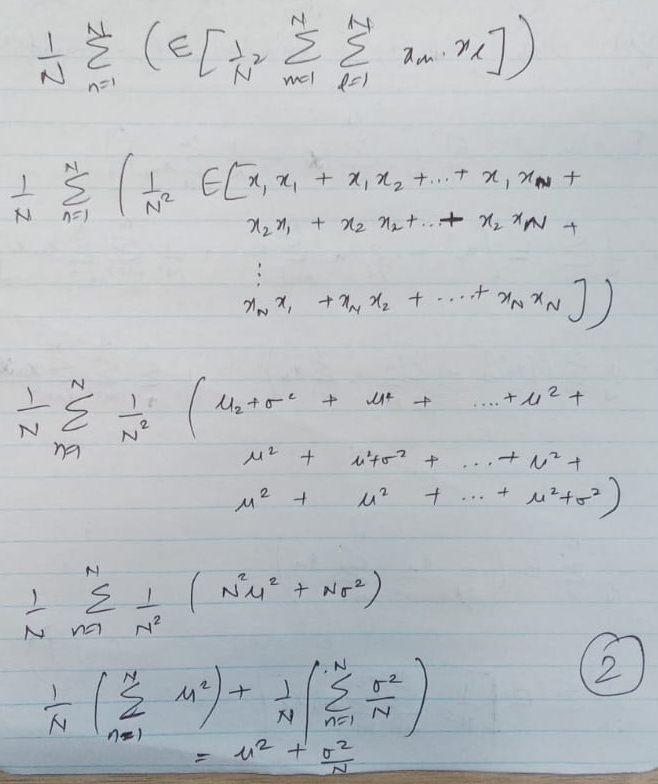 1/N Σ_{n=1}^{N} ( E[ 1/N² Σ_{m=1}^{N} Σ_{l=1}^{N} x_m . x_l ] )
1/N Σ_{n=1}^{N} ( 1/N² E[ x₁x₁ + x₁x₂ + ... + x₁x_N +
x₂x₁ + x₂x₂ + ... + x₂x_N +
⋮
x_N x₁ + x_N x₂ + ... + x_N x_N ] )
1/N Σ_{n=1}^{N} 1/N² ( μ₂+σ² + μ² + .... + μ² +
μ² + μ²+σ² + ... + μ² +
μ² + μ² + ... + μ²+σ² )
1/N Σ_{n=1}^{N} 1/N² ( N²μ² + Nσ² )
2
1/N ( Σ_{n=1}^{N} μ² ) + 1/N ( Σ_{n=1}^{N} σ²/N )
= μ² + σ²/N